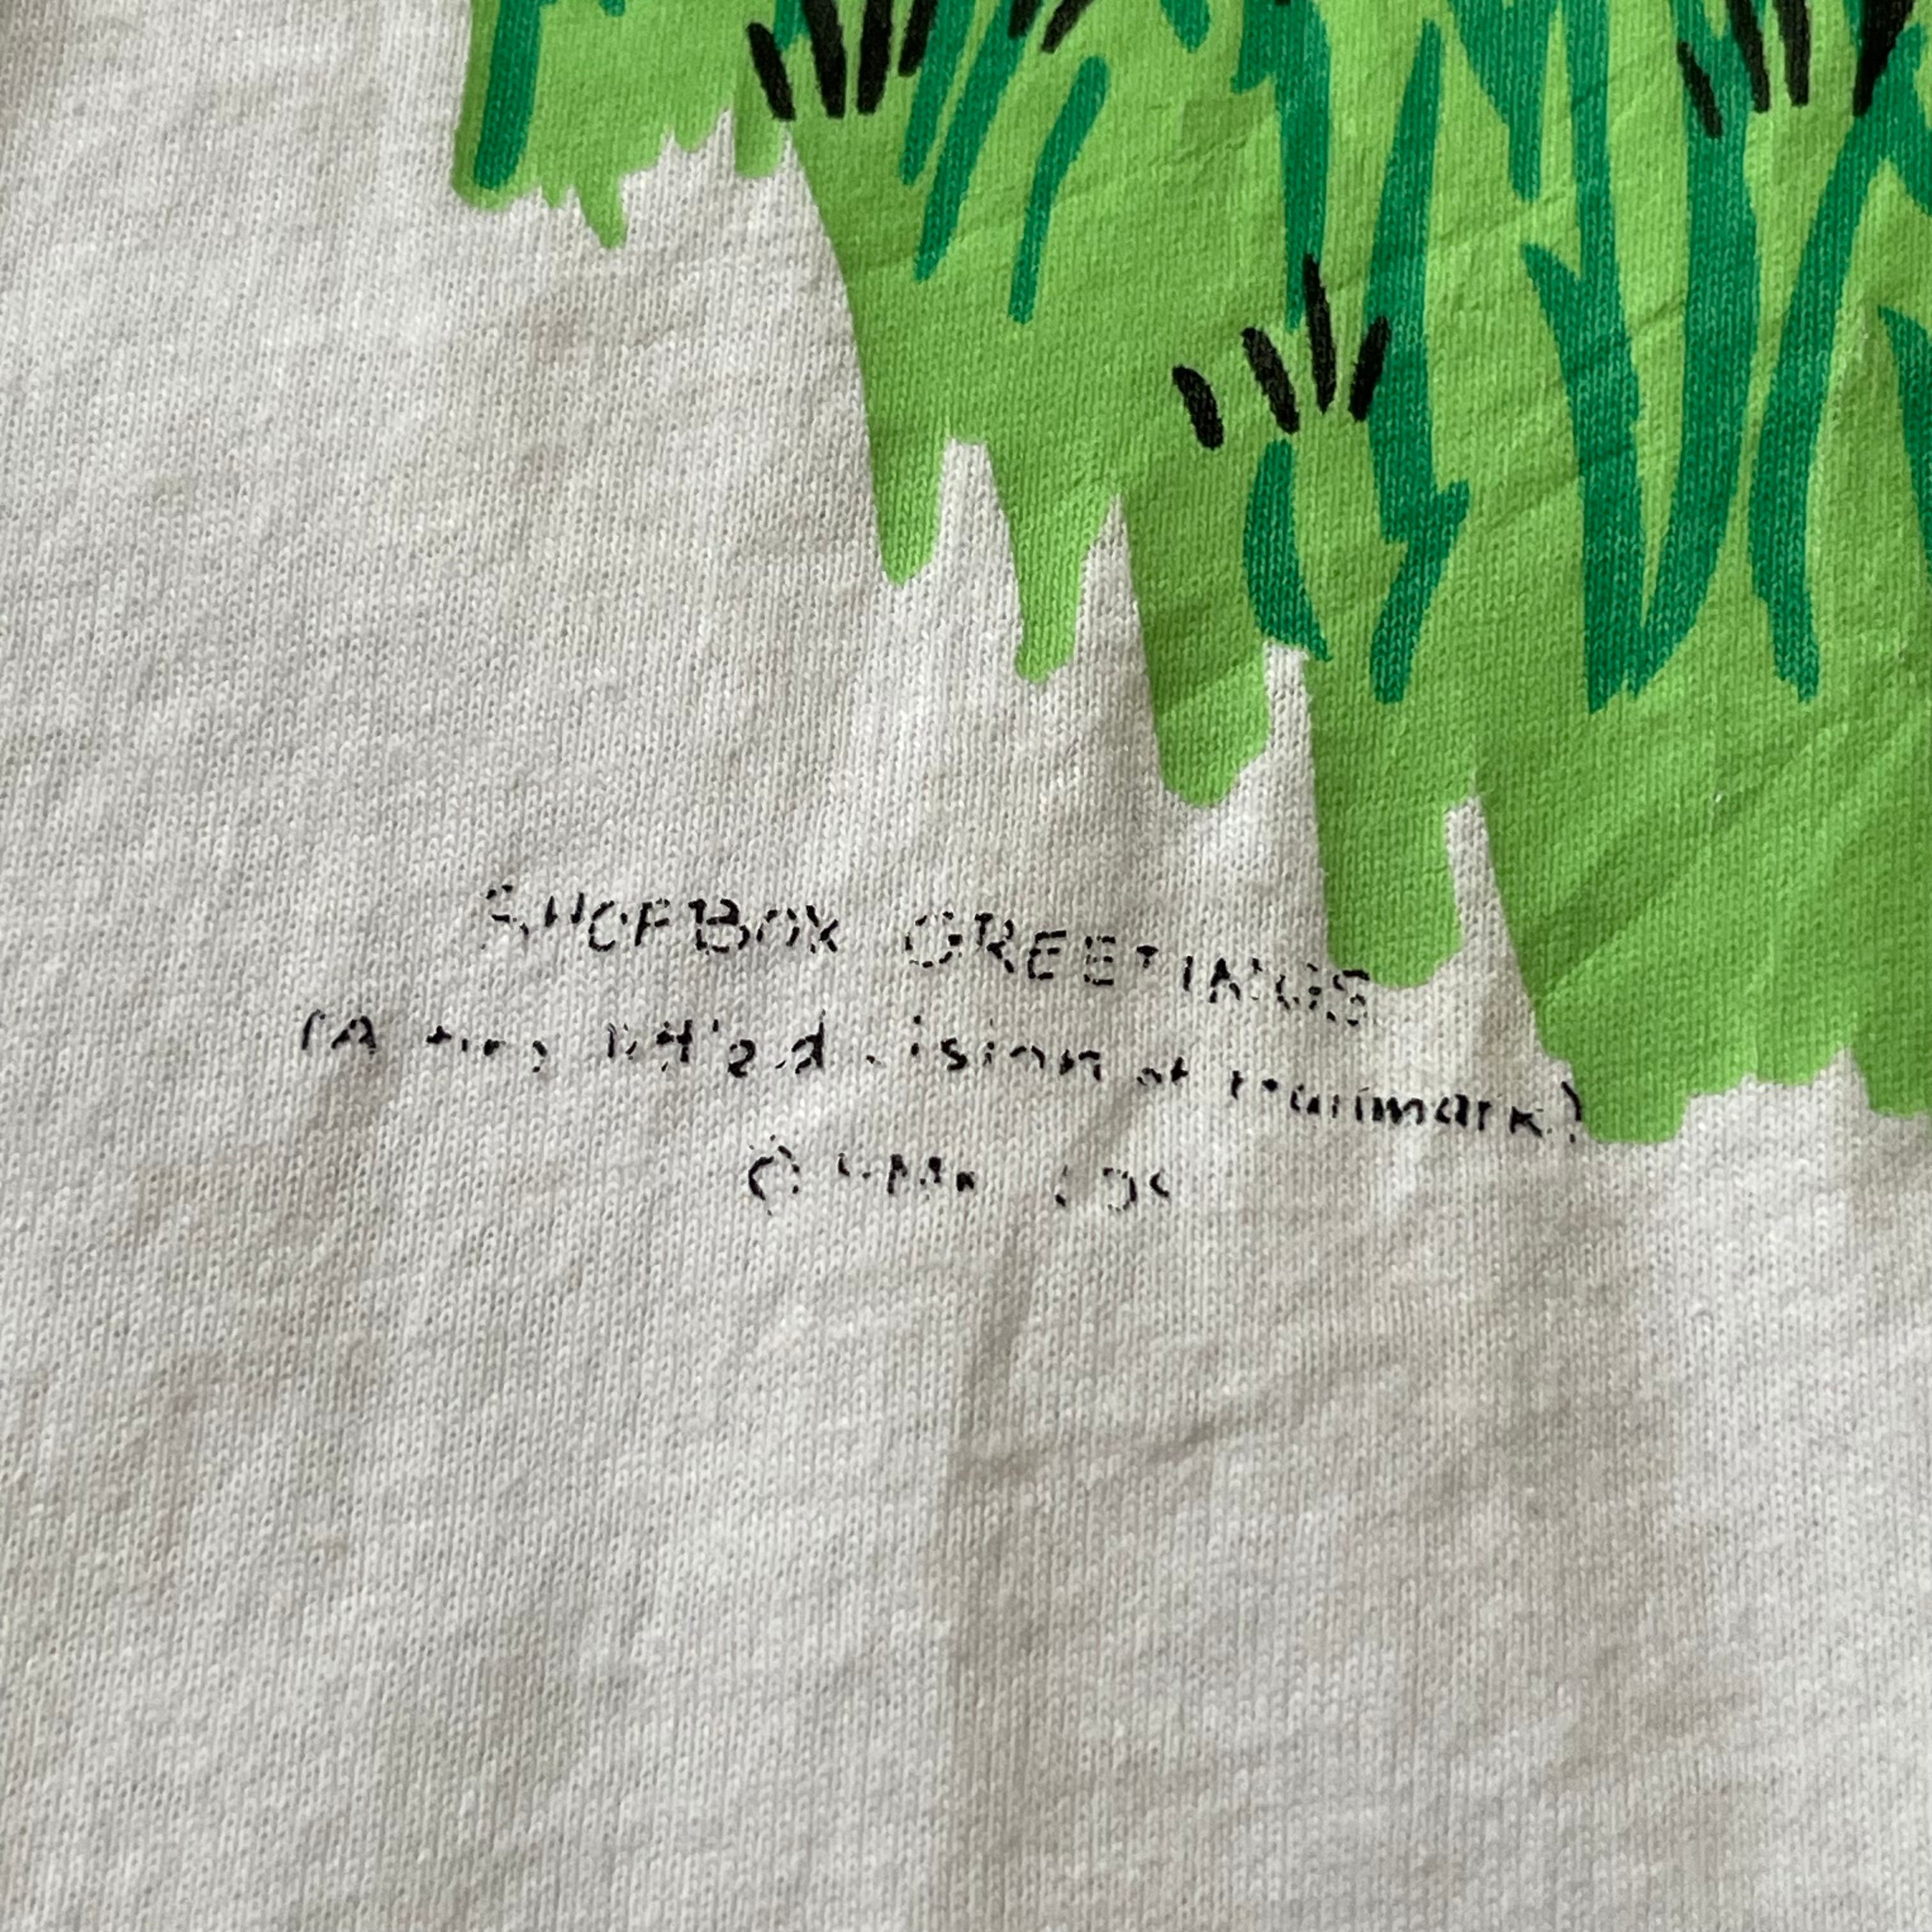 SHOEBOX GREETINGS
(A tiny li'l division of Hallmark)
©